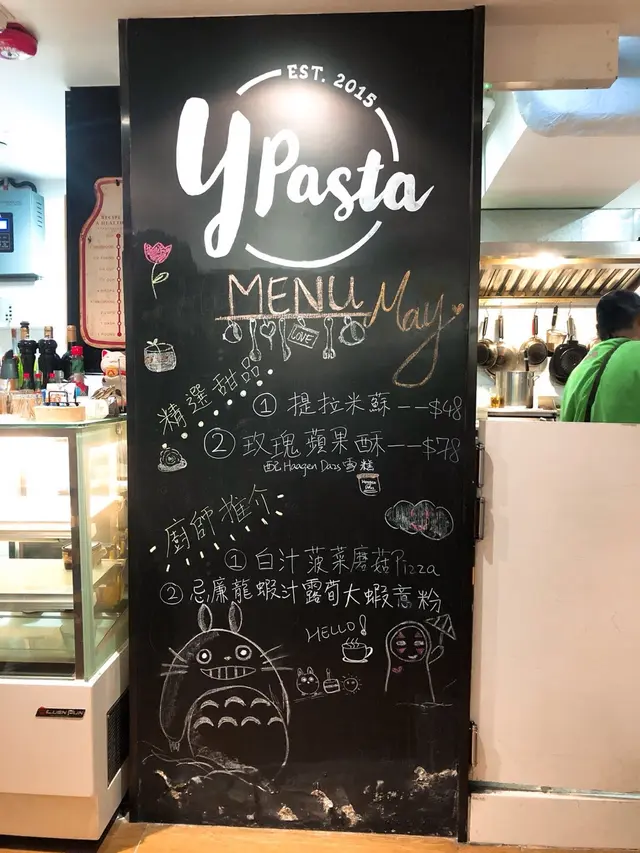 EST. 2015
y Pasta
MENU May
LOVE
精選甜品
① 提拉米蘇 -- $48
② 玫瑰蘋果酥 -- $78
配Haagen Dazs雪糕
廚師推介
① 白汁菠菜磨菇Pizza
② 忌廉龍蝦汁露荀大蝦意粉
HELLO!